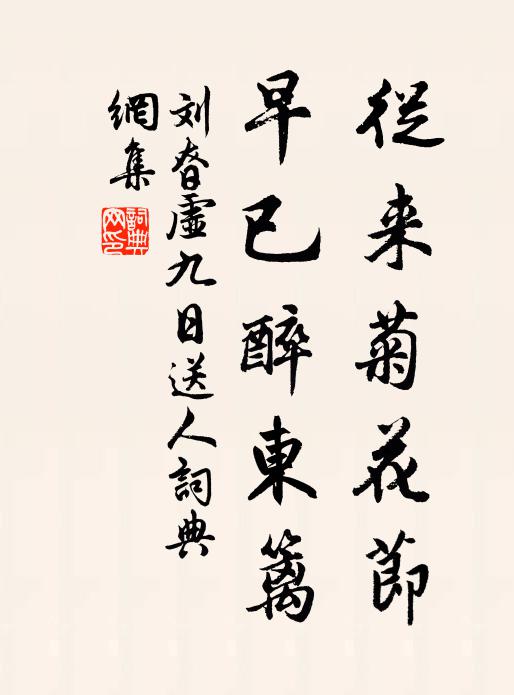 從来菊花節
早已醉東籬
刘眘虚九日送人詞典
網集
詞典網印